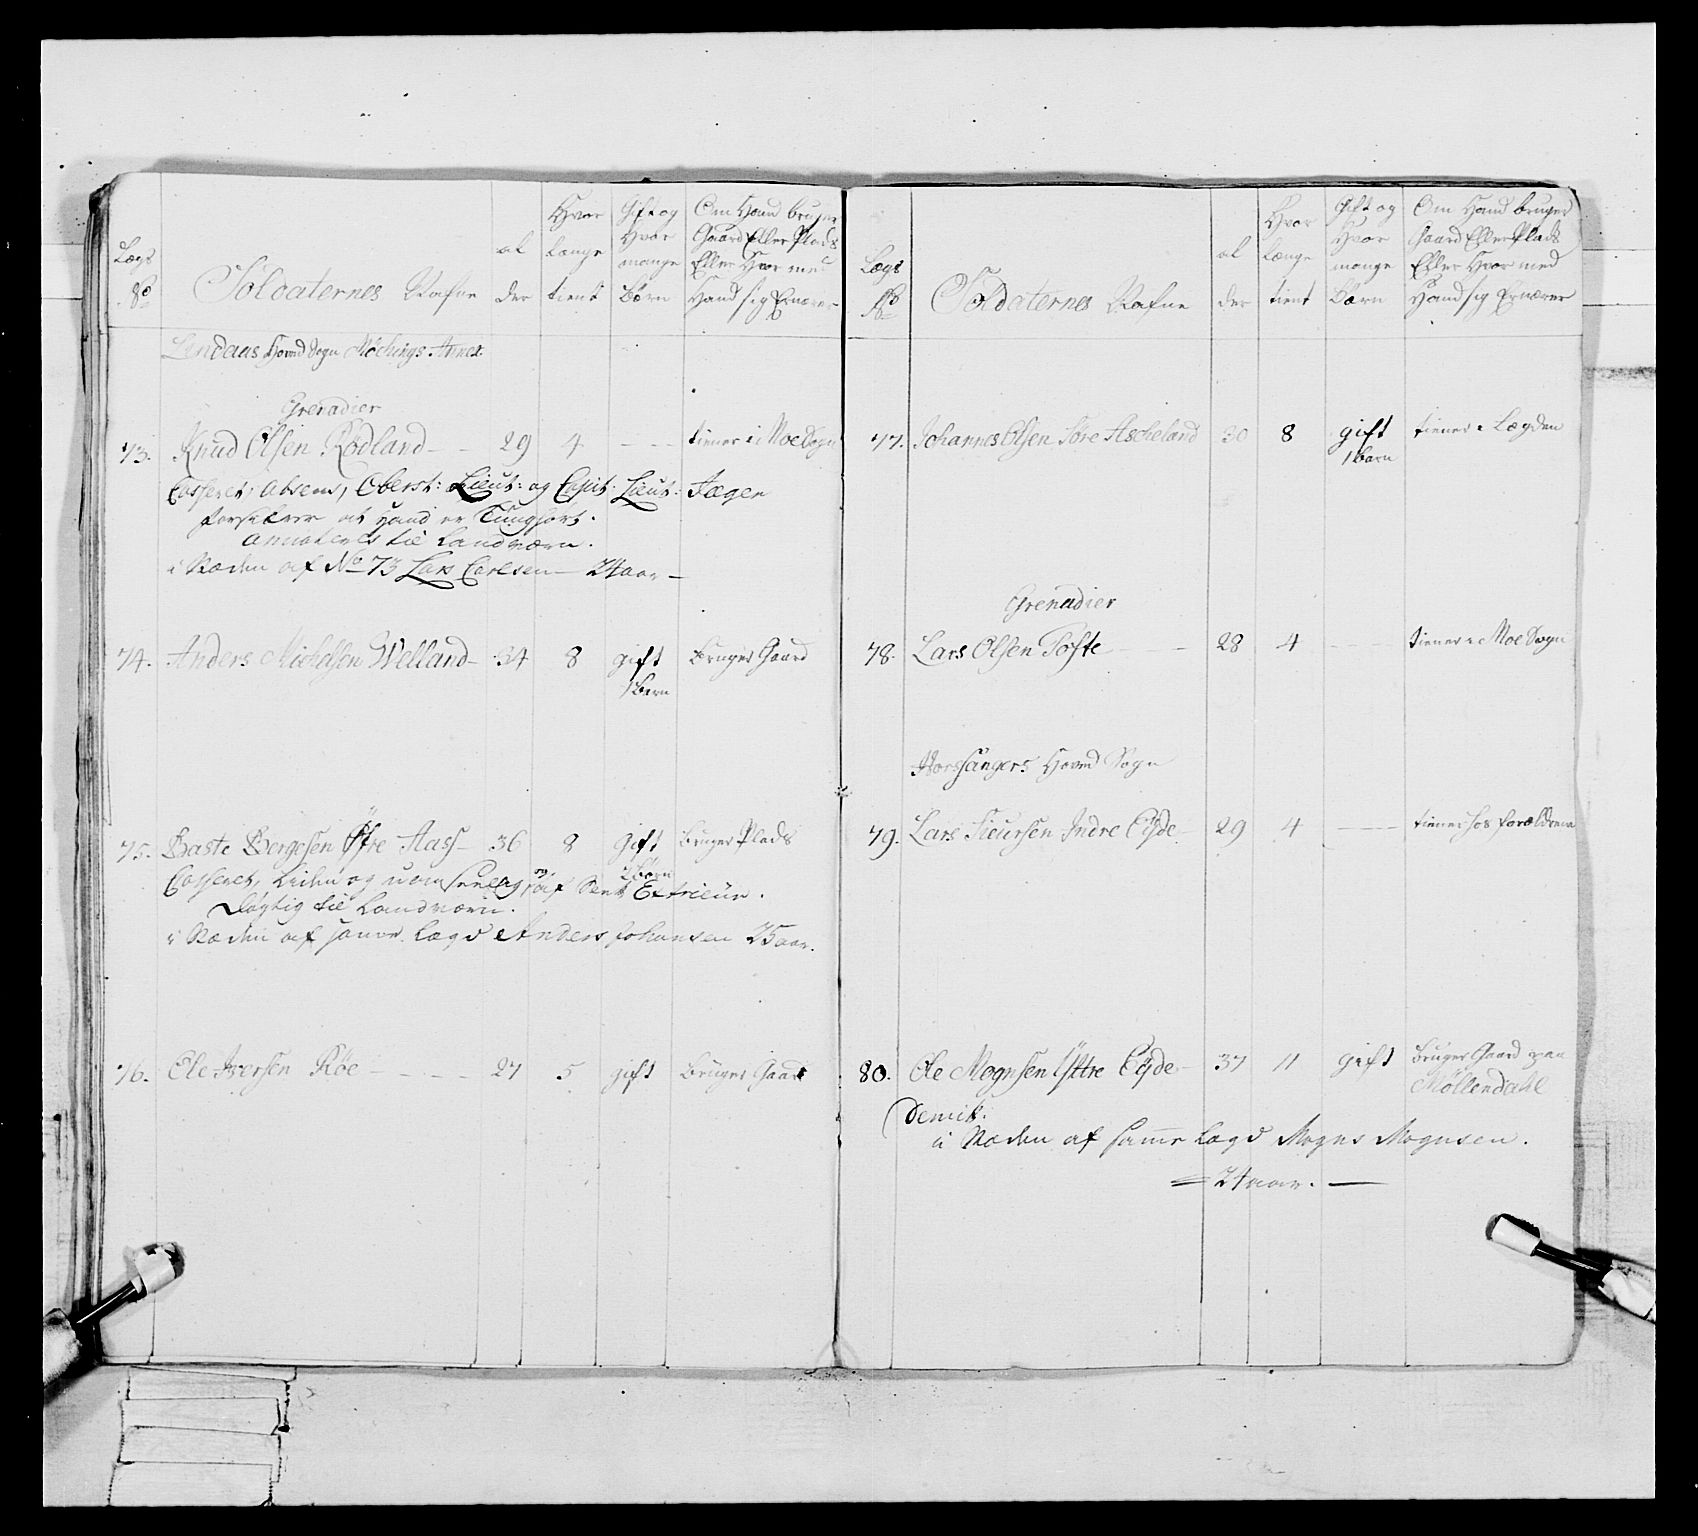 Lægs
No
Soldaternes Nafne
al
der
Hvor
længe
tient
Gift og
Hvor
mange
Børn
Om Hand bruger
Gaard Eller Plads
Eller Hvor med
Hand sig Ernærer
Lindaas Hoved Sogn Annex
Grenadier
73. Knud Olsen Rødland 29 4 tiener i Moe Sogn
Casseret, absens, Oberst: Lieut: og Capit: Lieut: Jæger
forsikrer at Hand er Tunghørt.
annoteres til Landværn.
i Stæden af No 73 Lars Carlsen 24 aar
74. Anders Michelsen Welland 34 8 gift Bruger Gaard
1 barn
75. Baste Bergesen Øfre Aass 36 8 gift Bruger Plads
2 Børn
Casseret, liden og uanseelig og af Slet Extrieur.
Døgtig til Landværn.
i Stæden af samme Lægd Anders Johansen 25 aar.
76. Ole Iversen Røe 27 5 gift Bruger Gaard
Lægs
No
Soldaternes Nafne
al
der
Hvor
længe
tient
Gift og
Hvor
mange
Børn
Om Hand bruger
Gaard Eller Plads
Eller Hvor med
Hand sig Ernærer
77. Johannes Olsen Søre Ascheland 30 8 gift tiener i Lægden
1 barn
Grenadier
78. Lars Olsen Tofte 28 4 tiener i Moe Sogn
Hoved Sogn
79. Lars Siursen Indre Eyde 29 4 tiener hos forældrene
80. Ole Mognsen Yttre Eyde 37 11 gift Bruger Gaard paa
Møllendahl
Demit:
i Stæden af samme Lægd Mogns Mognsen.
24 aar.